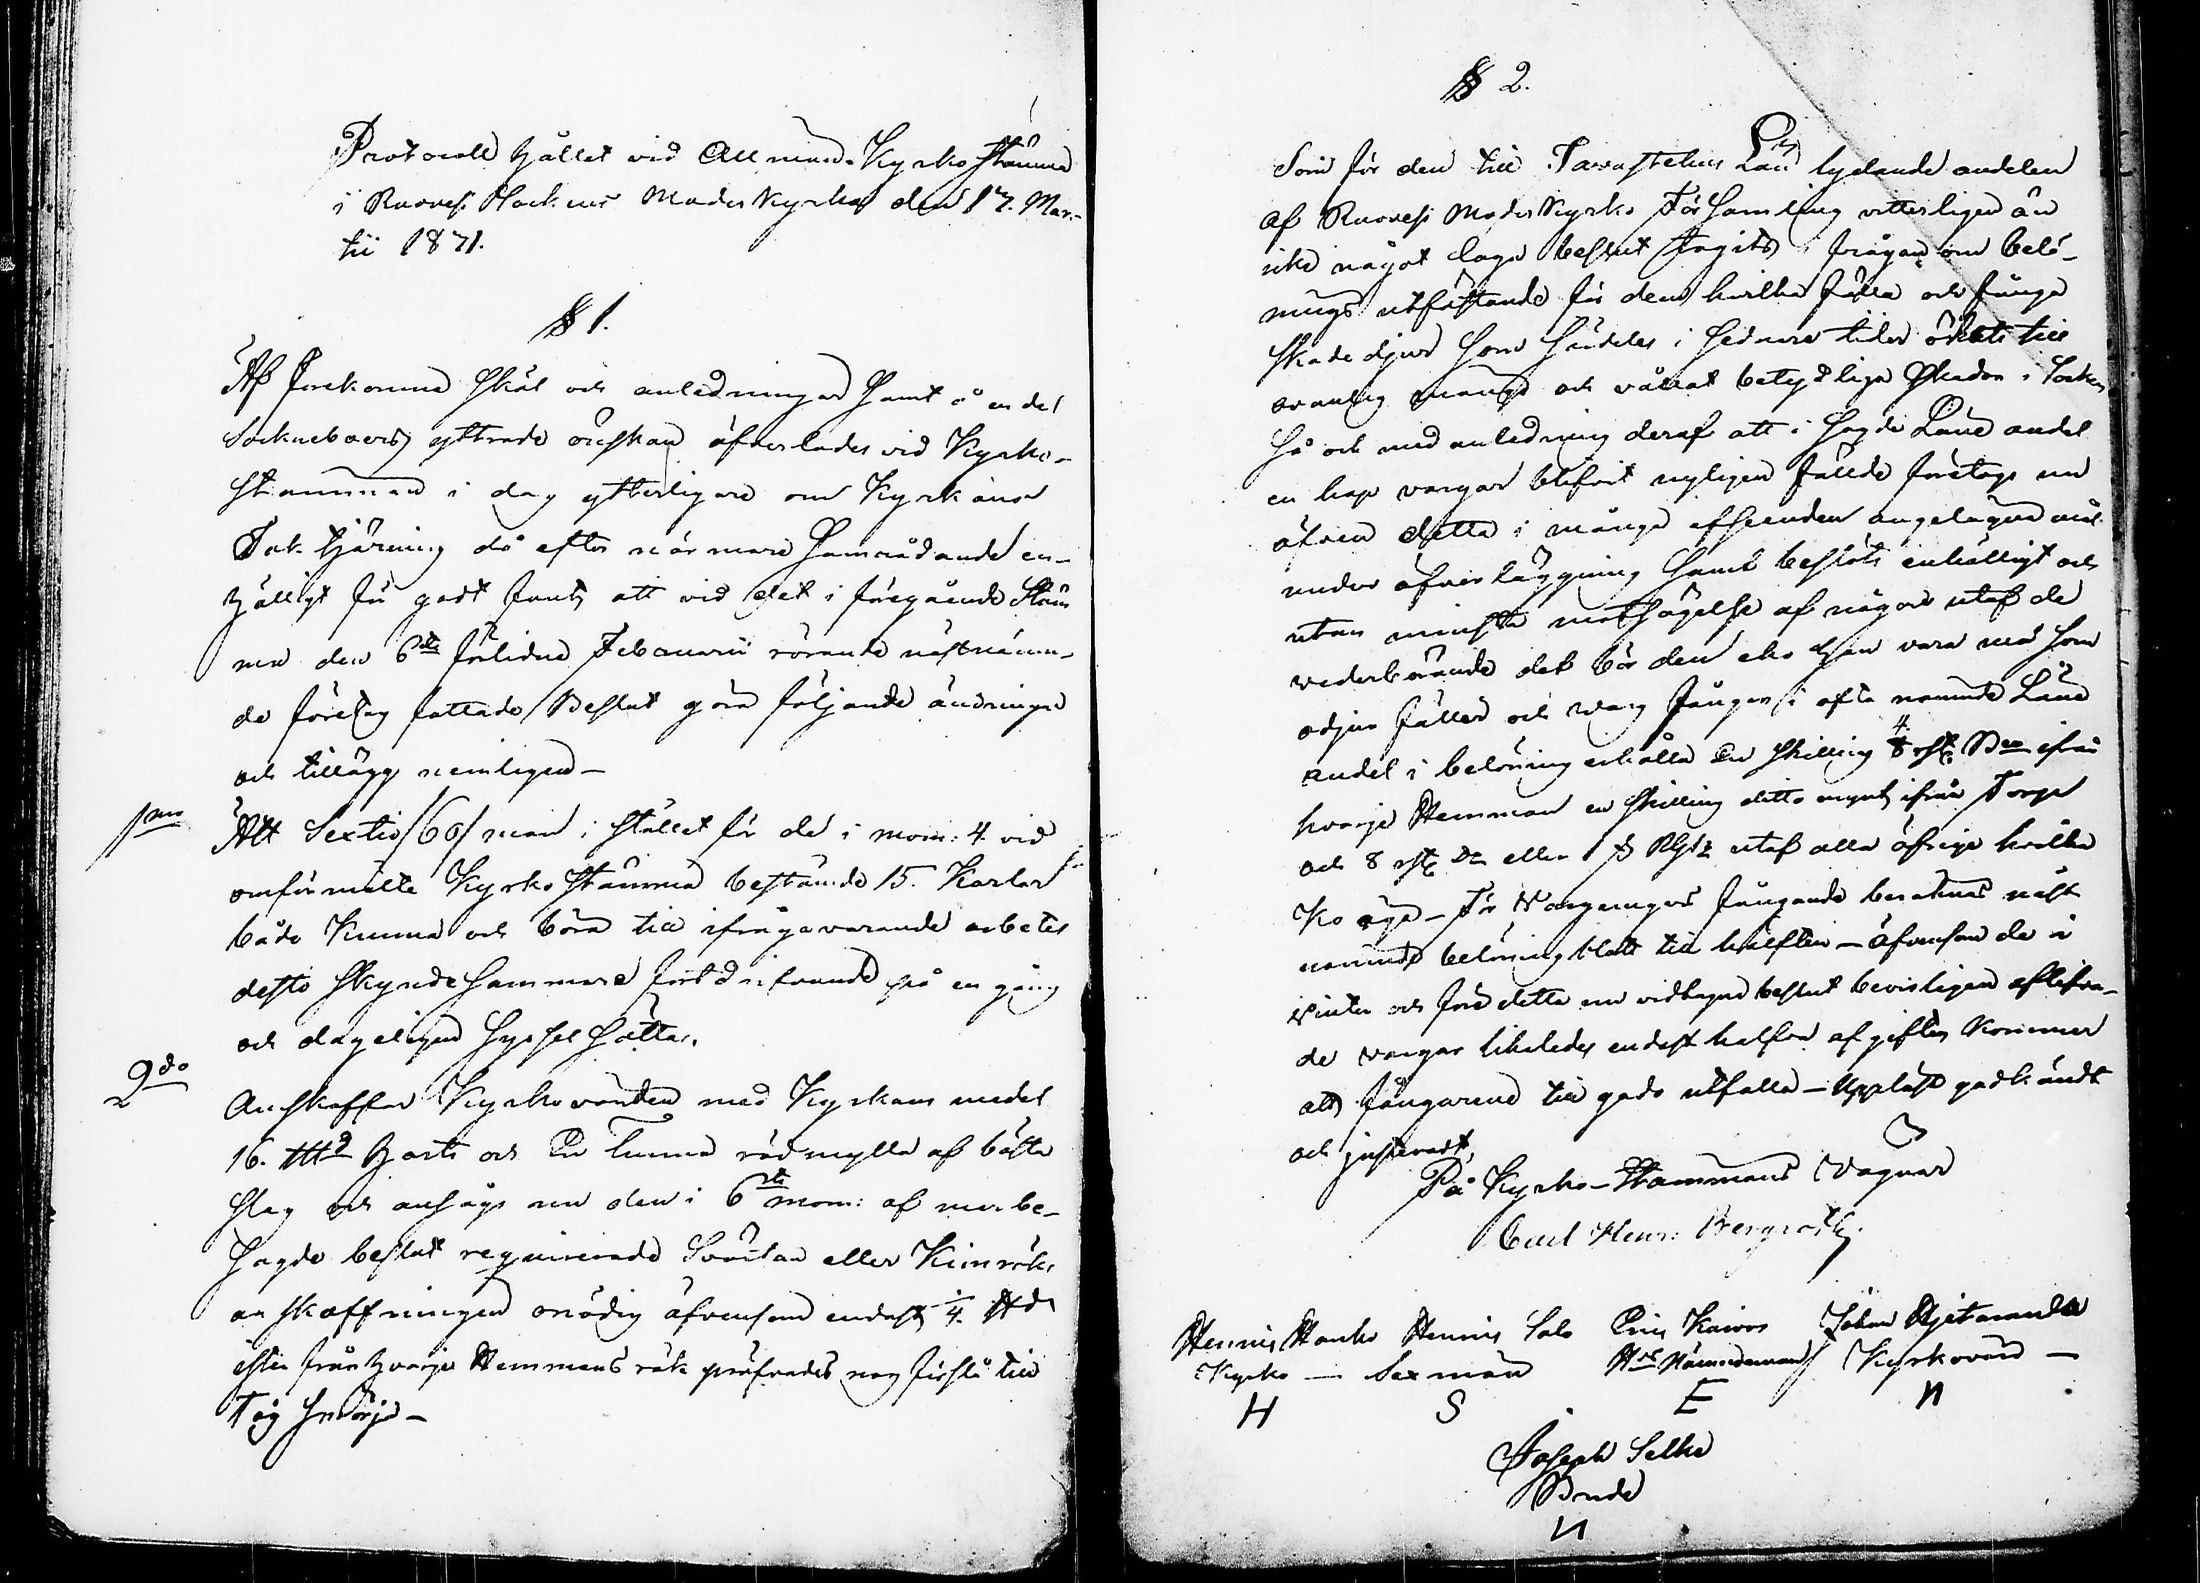 Protocoll hållet vid Allmän Kyrko stämma
i Ruovesi Sockens Moder Kyrka den 17. Mar-
tii 1821.
§ 1.
Af förekomne skäl och anledningar samt å en del
Sockneboers yttrade önskan öfverlades vid Kyrko-
stämman i dag ytterligare om Kyrkans
Tak tjärning då efter närmare samrådande en-
hälligt för godt fants att vid det i föregående Stäm
ma den 6te förlidne Februarii rörande nästnämn-
de företag fattade Beslut göra följande ändringar
och tillägg nemligen—
1mo
Att Sextio /60/ man i stället för de i mom: 4. vid
omförmälte Kyrko stämma bestämde 15. Karlar
både kunna och böra till ifrågavarande arbetes
desto skyndesammare fortdrifvande på en gång
och dageligen sysselsättas.
2do
Anskaffar Kyrkovärden med Kyrkans medel
16. harts och En tunna rödmylla af bästa
slag och ansågs nu den i 6te mom: af merbe-
sagde beslut requirerade Svärtan eller Kimröks
anskaffningen onödig äfvensom endast 1/4.
ister från hvarje Hemmans rök pröfvades nog förslå till
Tåg smörja—
§ 2.
Som för den till Tavastehus Län lydande andelen
af Ruovesi Moder Kyrko Församling vetterligen än
icke något laga beslut tagits i frågan om belö-
nings utfästande för dem hvilka fälla och fånga
skadedjur som särdeles i sednare tider ökats till
ovanlig mängd och vållat betydliga skador i Socken
så och med anledning deraf att i sagde Läne andel
en hop vargar blifvit nyligen fällde företogs nu
äfven detta i många afseenden angelägna mål
under öfverläggning samt beslöts enhälligt och
utan minsta motsägelse af någon utaf de
vederbörande det bör den eho han vara må som
odjur fäller och Varg fångar i ofta nämnde Läne
andel i belöning erhålla En skilling 4 rst. Bco ifrån
hvarje Hemman en skilling ditto mynt ifrån Torpen
och 8 rst. Do eller utaf alla öfriga hvilka
Ko äga— För Vargungars fångande beräknas näst
nämnde belöning blott till hälften— äfvensom de i
Vinter och före detta nu vidtagne beslut bevisligen aflifva-
de vargar likaledes endast halfva afgiften kommer
att fångarene till godo utfalla— Uppläst godkändt
och justeradt,
På Kyrko-Stämmans Vägnar
Carl Henr: Bergroth.
Hennis Hanho Hennis Salo Eric Kaivos Johan Hjetamäka
Kyrko — Sexmän Nämndeman Kyrkovärd —
H S E N
Joseph Selke
Bonde
N